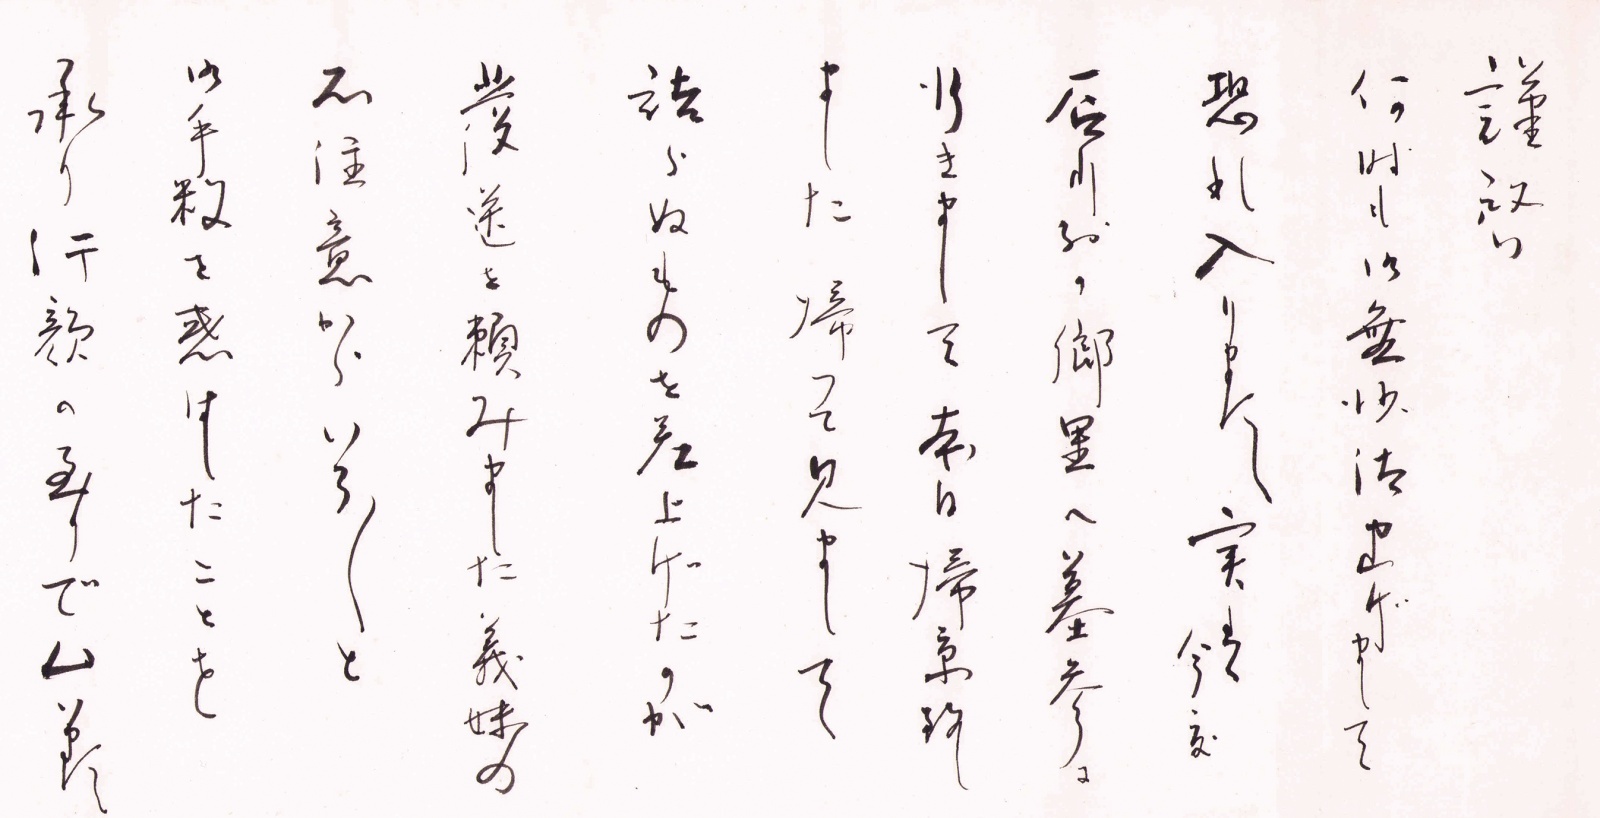 謹啓
何時も御無沙汰申上げまして
恐れ入りました 実は今度
石川県の郷里へ墓参に
行きまして本日帰京致し
ました 帰つて見まして
詰らぬものを差上げたのが
発送を頼みました義妹の
不注意からいろ〳〵と
御手数を惑はしたことを
承り汗顔の至りで